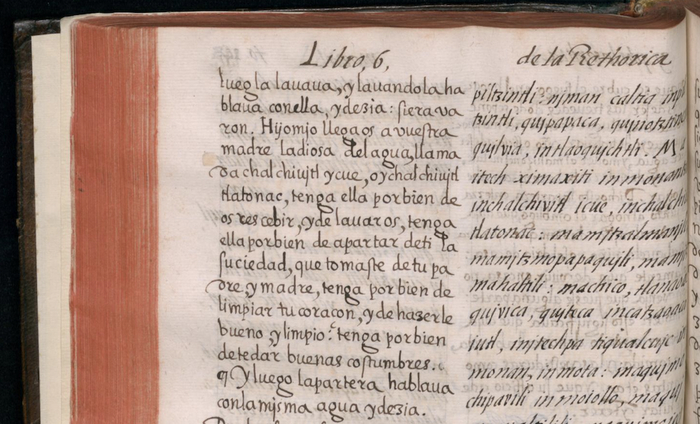 Libro, 6,
luego la lauaua, y lauandola ha
blaua con ella, y dezia: si era va
ron. Hijo mjo llegaos a vuestra
madre la diosa del agua, llama
da chalchiujtl ycue, o ychalchiujtl
tlatonac, tenga ella por bien de
os rescebir, y de lauaros, tenga
ella por bien de apartar de ti la
suciedad, que tomaste de tu pa
dre, y madre, tenga por bien de
limpiar tu coraçon, y de hazerle
bueno, y limpio: tenga por bien
de te dar buenas costumbres.
¶ Y luego la partera hablaua
con la mjsma agua y dezia.
de la Rethorica
piltzintli: njman caltia
tzintli, qujpapaca,
qujlvia, in tlaoqujchtli. M
itech ximaxiti in monan
in chalchivitl icue, in chalchi
tlatonac: ma mjtzalmonj
ma mjtzmopapaqujli, ma mj
mahaltili: ma chico, tlanaoa
qujvica, qujteca in catzaoac
iutl, in jtechpa
monan, in mota: ma qujmj
chipavili in moiollo, ma quj